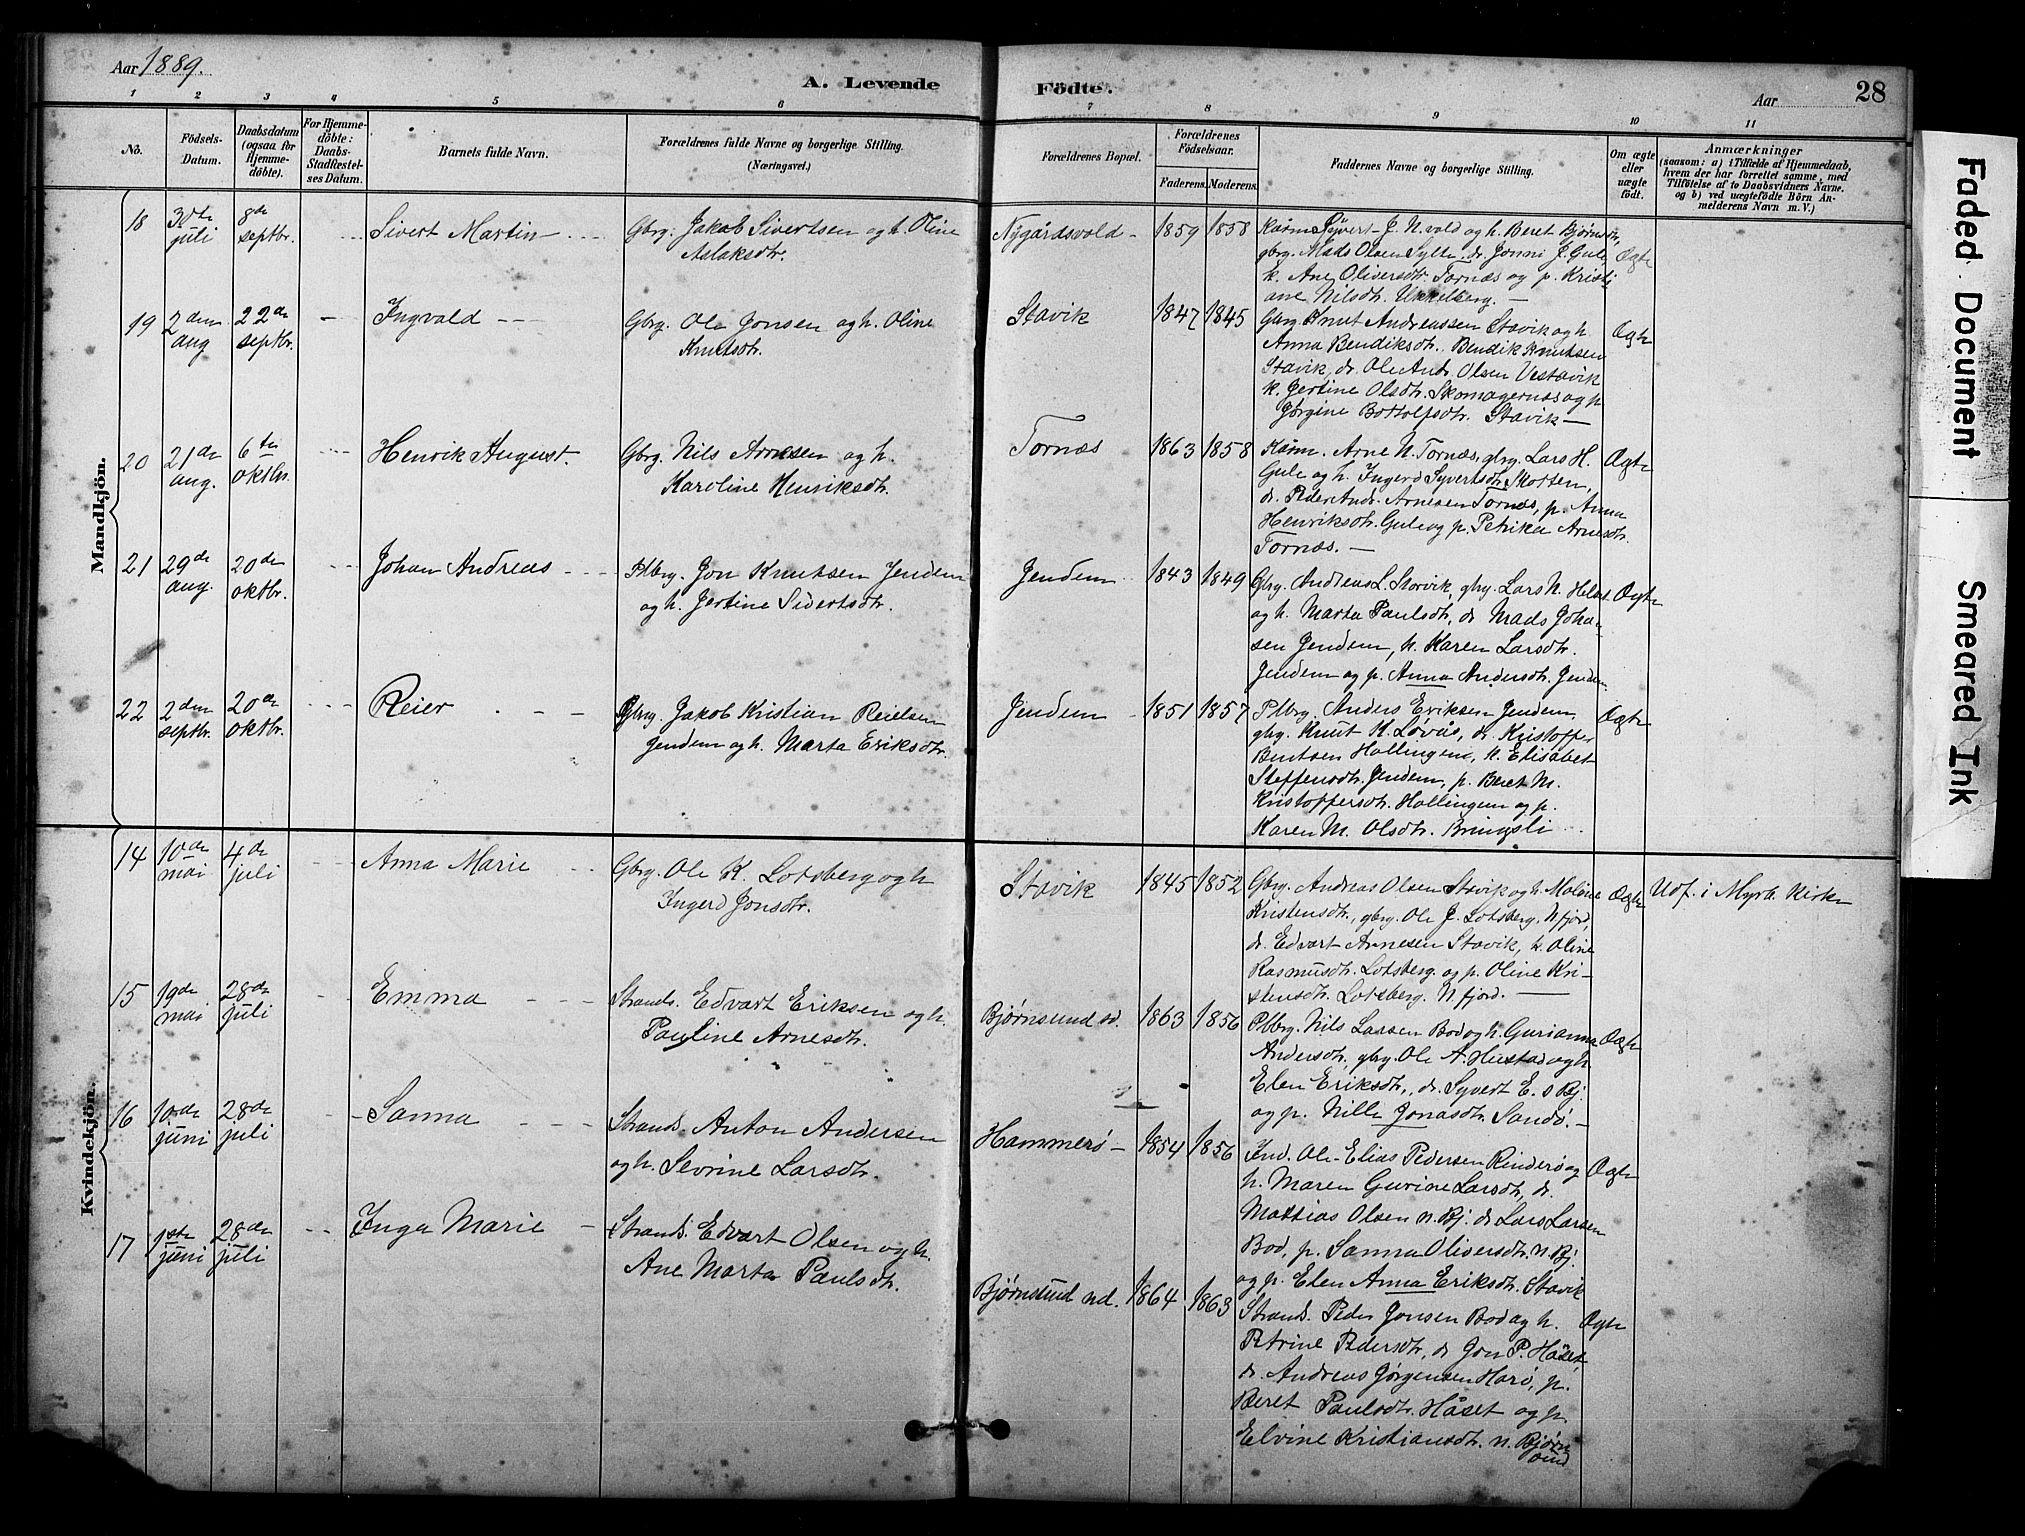 Aar 1889.
A. Levende Födte.
Aar 28
1 2 3 4 5 6 7 8 9 10 11
No.
Födsels-Datum.
Daabsdatum (ogsaa for Hjemmedöbte).
For Hjemmedöbte: Daabs-Stadfæstelses Datum.
Barnets fulde Navn.
Forældrenes fulde Navne og borgerlige Stilling. (Næringsvei).
Forældrenes Bopæl.
Forældrenes Födselsaar.
Faderens. Moderens.
Faddernes Navne og borgerlige Stilling.
Om ægte eller uægte födt.
Anmærkninger
(saasom: a) i Tilfælde af Hjemmedaab,
hvem der har forrettet samme, med
Tilföielse af to Daabsvidners Navne.
og b) ved uægtefödte Börn An-
melderens Navn m. V.)
Mandkjön.
18 30te juli 8de septbr. Sivert Martin
Gbrg. Jakob Sivertsen og h. Oline
Aslaksdtr.
Nygårdsvold - 1859 1858
Kårm. Syvert J. N.vold og h. Beret Bjørnsdtr,
gbrg. Mads Olsen Sylte, dr. Jonni J. Gule,
k. Ane Oliversdtr. Tornæs og p. Kristi
ane Nilsdtr. Ukkelberg. —
Ægte
19 2den aug 22de septbr. Ingvald
Gbrg. Ole Jonsen og h. Oline
Knutsdtr.
Stavik 1847 1845
Gbrg. Knut Andreassen Stavik og h.
Anna Bendiksdtr. Bendik Knutsen
Stavik, dr. Ole Andr. Olsen Vestavik
k. Jertine Olsdtr. Skomagernæs og p
Jørgine Bottolfsdtr. Stavik —
Ægte
20 21de aug. 6te oktbr. Henrik August.
Gbrg. Nils Arnesen og h.
Karoline Henriksdtr.
Tornæs 1863 1858
Kårm. Arne N. Tornæs, gbrg. Lars H.
Gule og h. Ingerd Syvertsdtr. Morten,
dr. Peder Andr. Arnesen Tornæs, p. Anna
Henriksdtr. Gule og p. Petrika Arnesdtr.
Tornæs. —
Ægte
21 29de aug. 20de oktbr. Johan Andreas
Plbrg. Jon Knutsen Jendem
og h. Jertine Sivertsdtr.
Jendem 1843 1849
Gbrg. Andreas L. Stavik, gbrg. Lars N.
og h. Marta Paulsdtr, dr Mads Joha-
sen Jendem, k. Karen Larsdtr.
Jendem og p. Anna Andersdtr. Jendem
Ægte
22 2den septbr. 20de oktbr. Reier
Gbrg. Jakob Kristian Reielsen
Jendem og h. Marta Eriksdtr.
Jendem 1851 1857
Plbrg. Anders Eriksen Jendem,
gbrg. Knut K. Løvås, dr. Kristoffer
Bentsen Hollingem, k. Elisabet
Steffensdtr. Jendem, p. Beret M.
Kristoffersdtr. Hollingem og p.
Karen M. Olsdtr. Bringsli
Ægte
Kvindekjön.
14 10de mai 4de juli Anna Marie
Gbrg. Ole K. Lotsberg og h
Ingerd Jonsdtr.
Stavik 1845 1852
Gbrg. Andreas Olsen Stavik og h. Malene
Kristensdtr., gbrg. Ole J. Lotsberg. N fjord,
dr. Edvart Arnesen Stavik, k. Oline
Rasmusdtr. Lotsberg og p. Oline Kri-
stensdtr. Lotsberg. N fjord. —
Ægte
Udf. i Myrb. Kirke
15 19de mai 28de juli Emma
Strands. Edvart Eriksen og h.
Pauline Arnesdtr.
Bjørnsund sd. 1863 1856
Plbrg. Nils Lassen Bod og h. Gurianna
Andersdtr, gbrg. Ole A. Hustad og h.
Elen Eriksdtr., dr. Syvert E. s Bj.
og p. Nille Jonasdtr. Sandø. —
Ægte
16 10de juni 28de juli Sanna
Strands. Anton Andersen
og h. Sevrine Larsdtr.
Hammerø - 1854 1856
Ind. Ole Elias Pedersen Rinderø og
h. Maren Gurine Larsdtr, dr.
Mattias Olsen n. Bj. dr Lars Larsen
Bod, p. Sanna Oliversdtr. n. Bj.
og p. Elen Anna Eriksdtr. Stavik
Ægte
17 1ste juni 28de juli Inga Marie
Strands. Edvart Olsen og h.
Ane Marta Paulsdtr.
Bjørnsund nd. 1864 1863
Strands. Peder Jonsen Bod og h.
Petrine Pedersdtr, dr Jon P. Håset,
dr. Andreas Jørgensen Harø, p.
Beret Paulsdtr. Håset og p.
Elvine Kristiansdtr. n. Bjørn
sund
Ægte
Faded Document
Smeared Ink